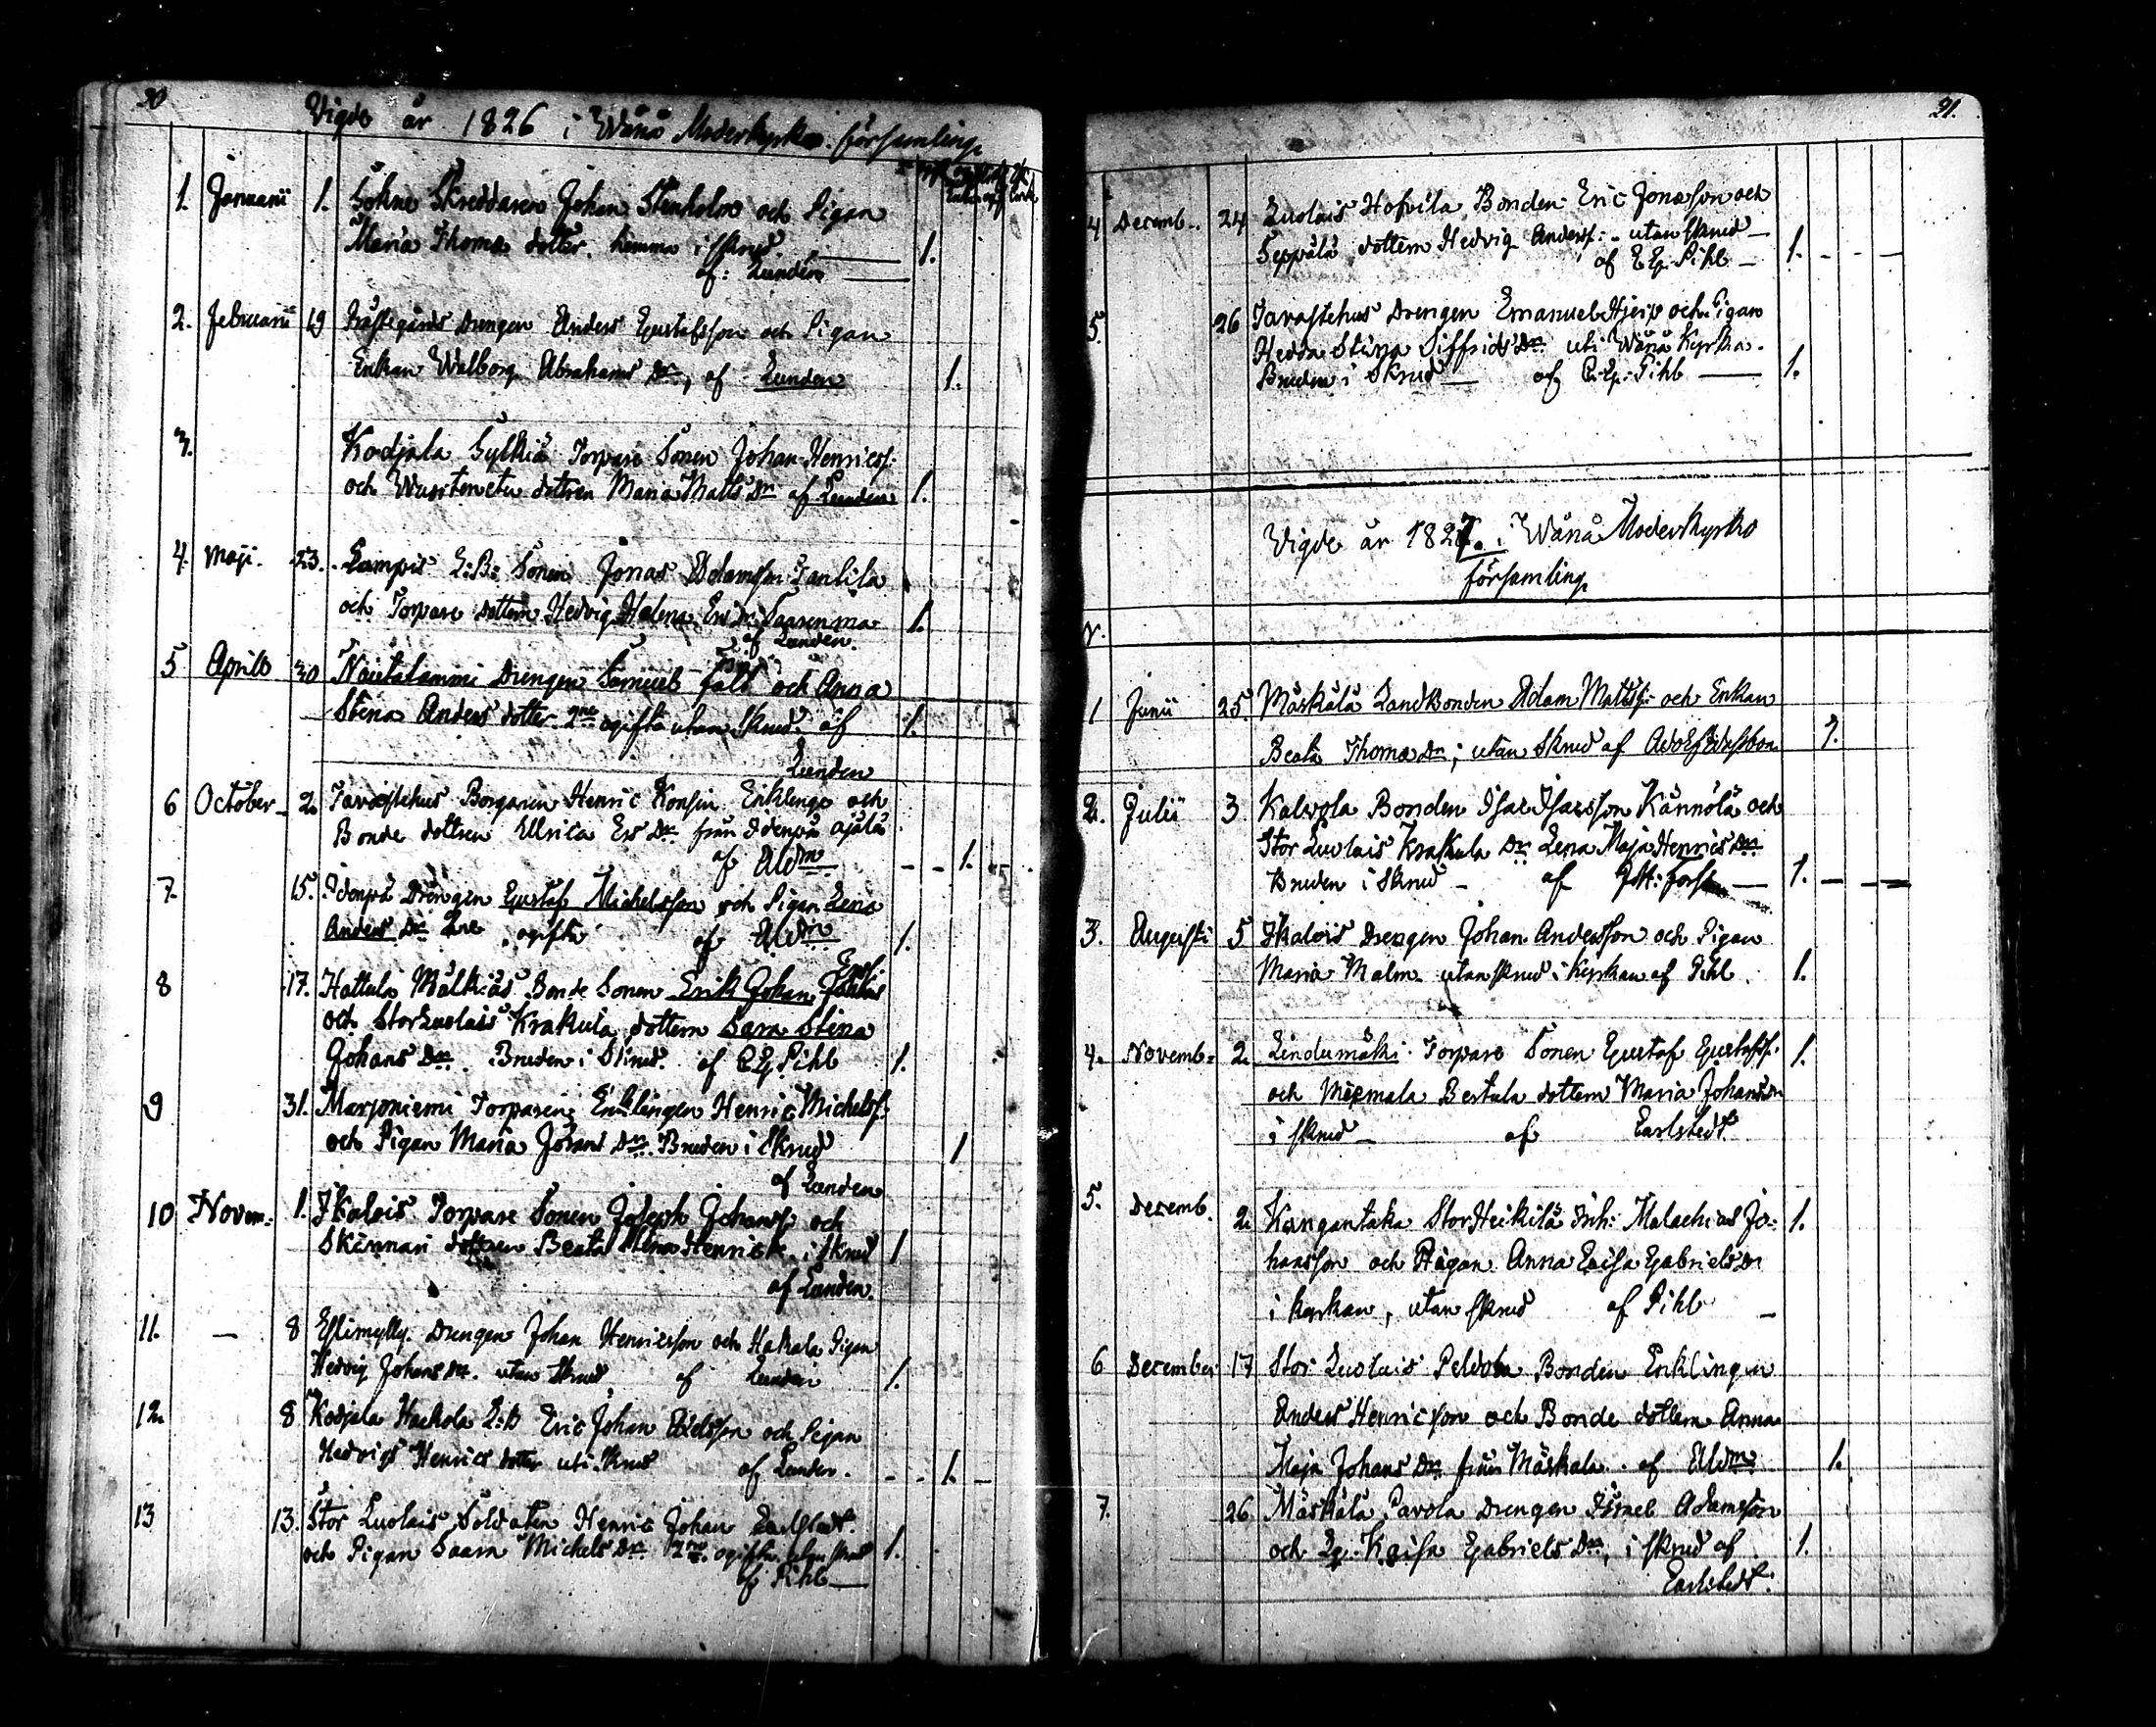 20
Vigde år 1826 i Wånå Moderkyrko församling
1. Januarii 1. Sohne Skreddaren Johan Stenholm och Pigan
Maria Thomæ dotter. hemma i skrud. 1.
af: Lunden
2. Februarii 19 Prästegårds Drengen Anders Gustafsson och Pigan
Enkan Walborg Abrahams Dr, af Lunden 1.
3. Kodjala Sylkiä Torpare Sonen Johan Henricss:
och dottren Maria Matts Dr af Lunden 1.
4. Maji. 23. Lampis L:B: Sonen Jonas Adamsson Tanlila
och Torpare dottern Hedvig Helena Er Dr: Saarenma 1.
af Lunden.
5 Aprill 30 Drengen Samuel Fält och Anna
Stina Anders dotter 2ne ogifta utan skrud. af 1.
Lunden
6 October 2. Tavastehus Borgaren Henric Konsin Enklinge och
Bonde dottren Ulrica Ers Dr. från Idenpä
af Aldm 1.
7. 15. Idenpä Drengen Gustaf Michelsson och Pigan Lena
Anders Dr. 2ne ogifta af Aldm 1.
8 17. Hattula Mälkiäs Bonde Sonen Erik Johan
och Storluolais Krakula dottern Sara Stina
Johans Dr. Bruden i Skrud. af C G Pihl 1.
9 31. Marjoniemi Torparen Enklingen Henric Michelss:
och Pigan Maria Johans Dr. Bruden i Skrud 1
af Lunden
10 Novem: 1. Ikalois Torpare Sonen Joseph Johanss: och
Skinnari dottren Beata Henrics Dr. i Skrud 1
af Lunden.
11. — 8 Eflimylly Drengen Johan Henricsson och Hakala Pigan
Hedvig Johans Dr. utan Skrud af Lunden 1.
12. 8 Kodjala Hackola L:B Eric Johan Axelsson och Pigan
Hedvigs Henrics dotter uti Skrud af Lunden. 1.
13 13. Stor Luolais Soldaten Henric Johan
och Pigan Saara Michels Dr. 2ne. ogifta utan skrud 1.
af Pihl
21.
4 Decemb.. 24 Luolais Hofvila Bonden Eric Jonasson och
Seppälä dottern Hedvig Anderss:. utan skrud
af C G. Pihl 1.
5. 26 Tavastehus Drengen Emanuel och Pigan
Hedda Stina Siffrids Dr. uti Wånå Kyrka.
Bruden i Skrud af C. G: Pihl 1.
Vigde år 1827. i Wånå Moderkyrko
församling
N.
1 Junii 25. Mäskälä Landbonden Adam Mattss: och Enkan
Beata Thomæ Dr.; utan Skrud af
2. Julii 3 Kalvola Bonden Isac Isacsson Kännölä och
Stor Luolais Krakula Dr. Lena Maja Henrics Dr.
Bruden i Skrud af 1.
3. Augusti 5 Ikalois Drengen Johan Andersson och Pigan
Maria Malm utan skrud i Kyrkan af Pihl. 1.
4. Novemb: 2. Lindumäki Torpare Sonen Gustaf Gustafss: 1.
och Miemala Bertula dottern Maria Johans Dr
i skrud af Carlstedt
5. Decemb. 2. Kangantaka StorHeikilä Inh: Malachias Jo: 1.
hansson och Pigan Anna Caisa Gabriels Dr
i kyrkan, utan skrud af Pihl
6 December 17 Stor Luolais Peldola Bonden Enklingen
Anders Henricsson och Bonde dottern Anna
Maja Johans Dr. från Mäskala. af Aldm. 1.
7. 26 Mäskälä Pavola Drengen Israel Adamsson
och Kaisa Gabriels Dr., i skrud af 1.
Carlstedt.